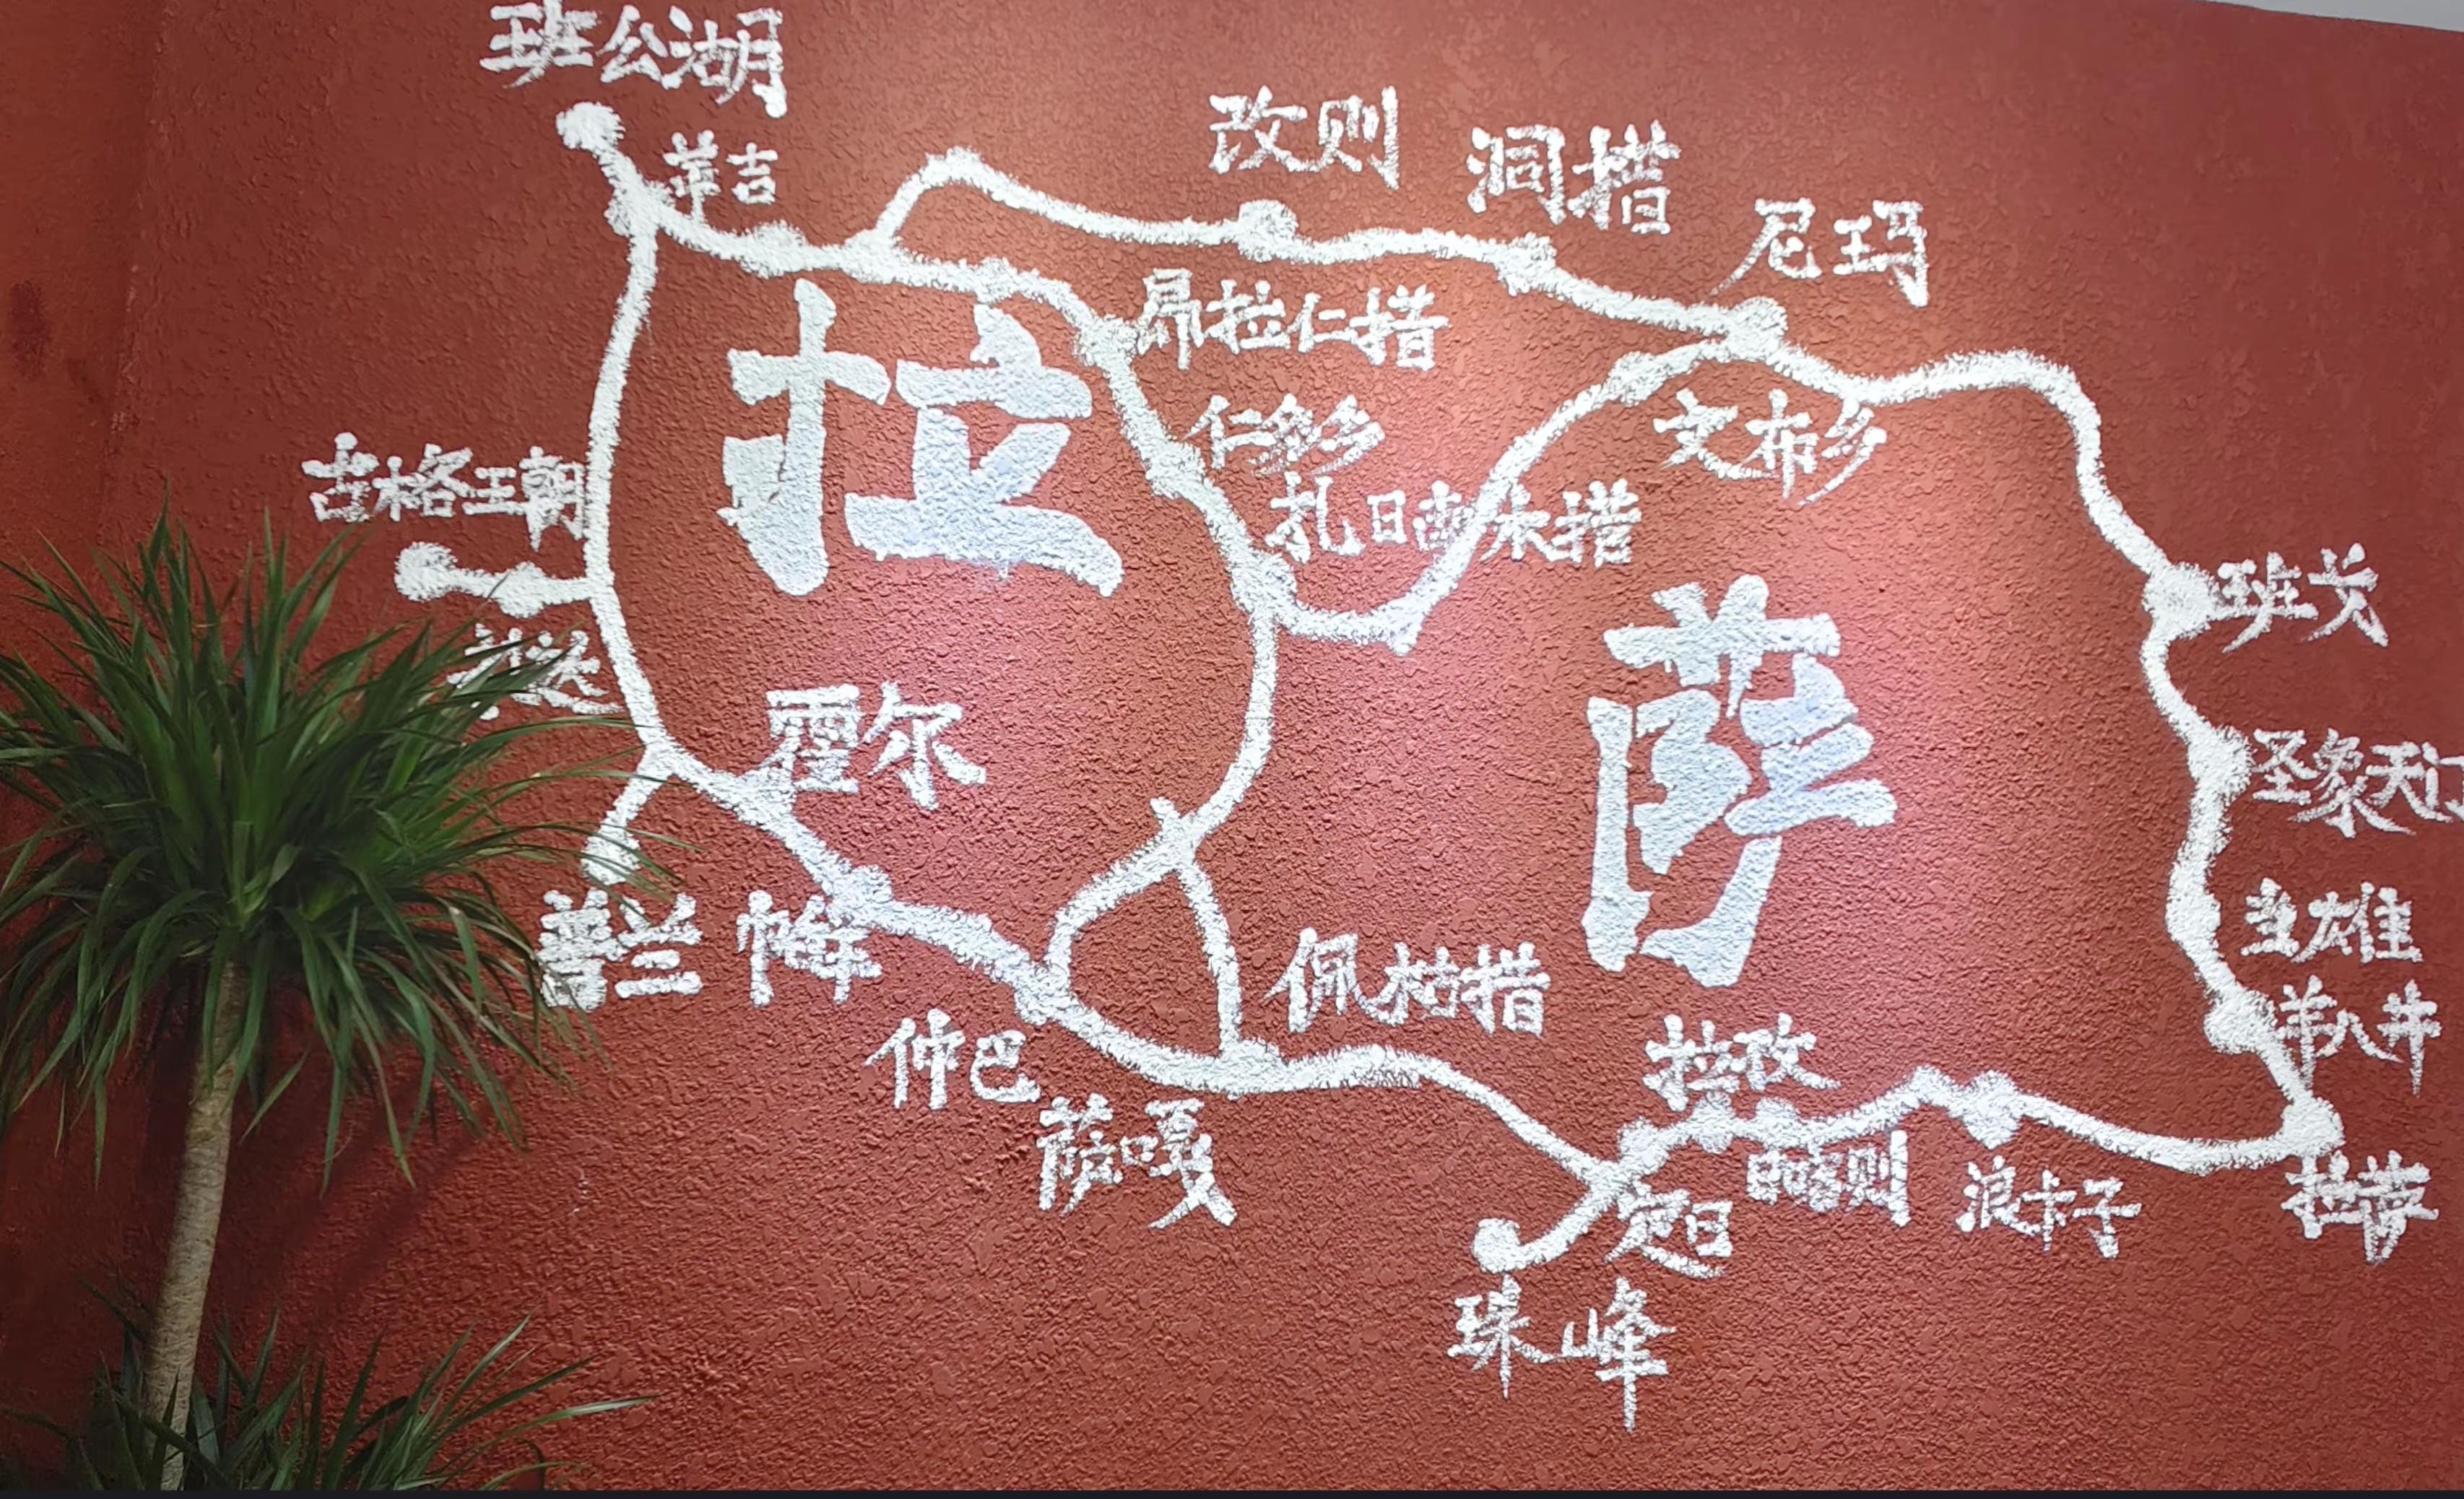 班公湖
革吉
改则
洞措
尼玛
昂拉仁措
仁多乡
文布乡
扎日南木措
拉
萨
古格王朝
札达
班戈
圣象天门
霍尔
普兰
帕羊
当雄
羊八井
佩枯措
仲巴
萨嘎
拉孜
日喀则
浪卡子
拉萨
定日
珠峰